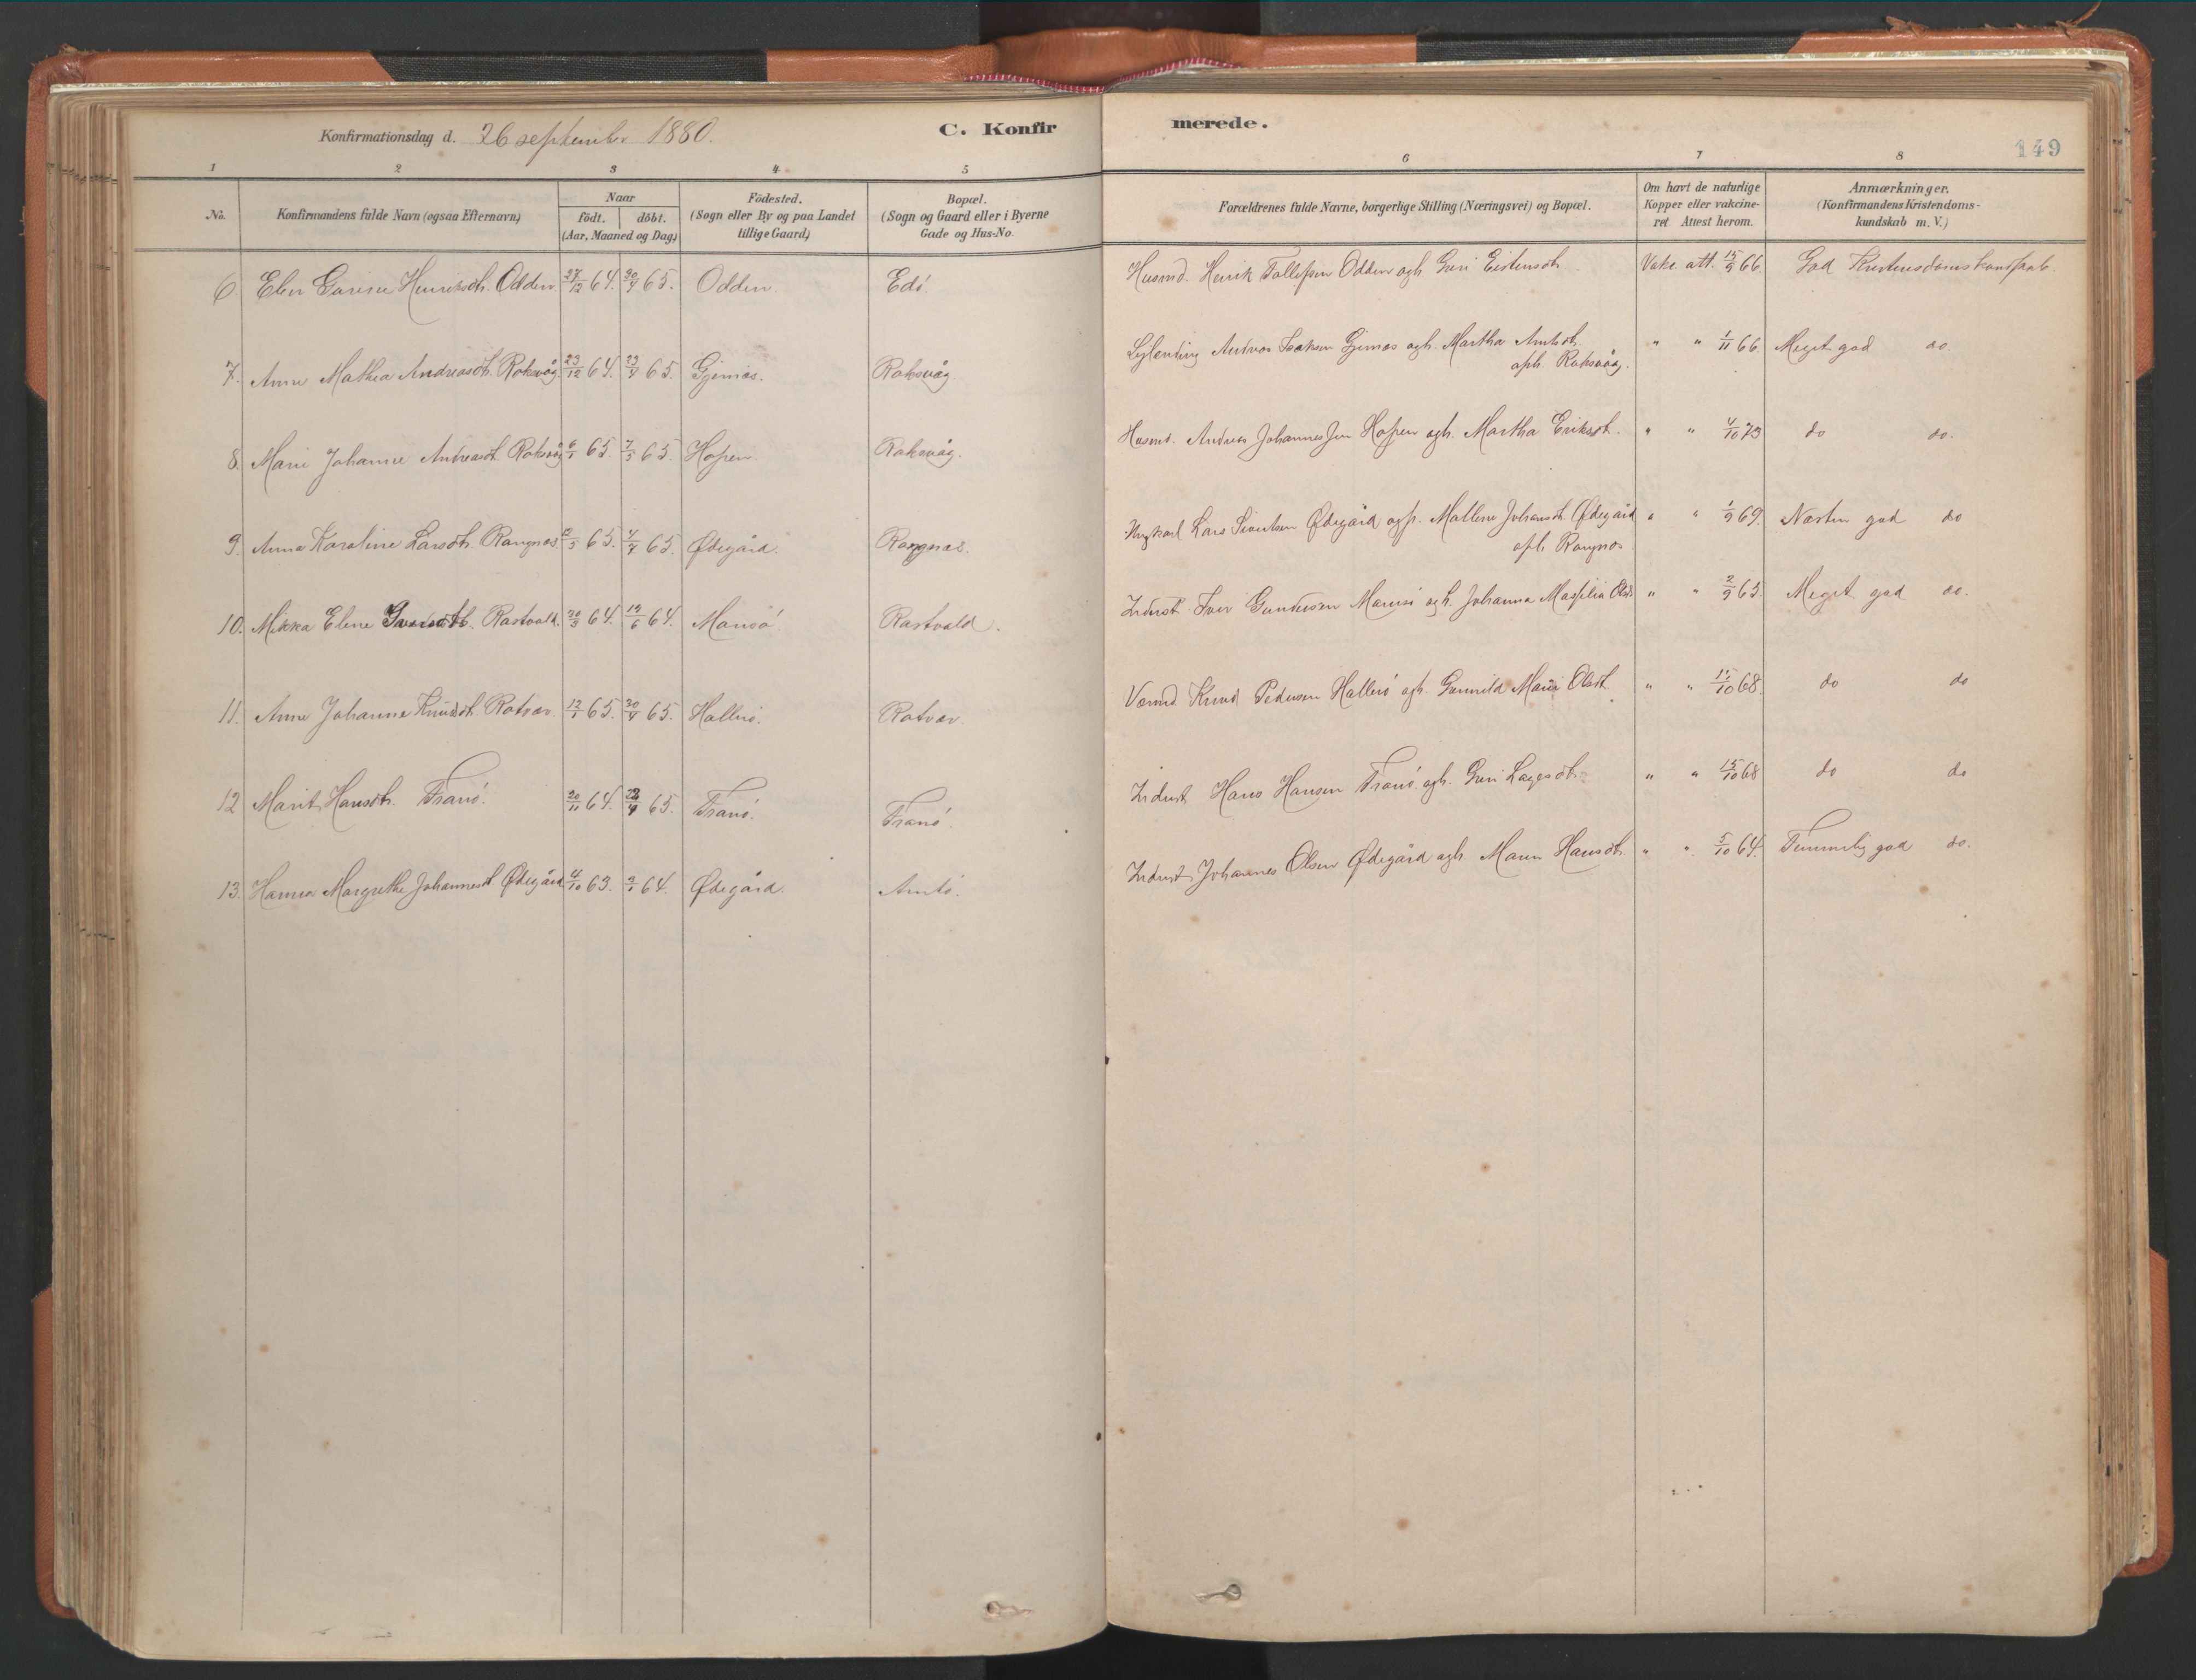 Konfirmationsdag d. 26 september 1880.
C. Konfirmerede.
149
1 2 3 4 5 6 7 8
No. Konfirmandens fulde Navn (ogsaa Efternavn) Naar födt. döbt. (Aar, Maaned og Dag) Födested. (Sogn eller By og paa Landet tillige Gaard) Bopæl. (Sogn og Gaard eller i Byerne Gade og Hus-No. Forældrenes fulde Navne, borgerlige Stilling (Næringsvei) og Bopæl. Om havt de naturlige Kopper eller vakcineret Attest herom. Anmærkninger. (Konfirmandens Kristendomskundskab m. V.)
6 Elen Gurine Henriksdt. Odden 27/12 64. 30/4 65. Odden. Edö. Husmd. Henrik Tollefsen Odden og h. Guri Eistensdt. Vakc. att. 15/9 66. God Kristendomskundskab.
7. Anne Mathea Andreasdt. Roksvåg 23/12 64. 23/4 65. Gjenæs. Roksvåg. Andreas Isaksen Gjenæs og h. Martha Arntsdt. oph. Roksvåg. " " 1/11 66. Meget god do.
8. Marie Johanne Andreasdt. Roksvåg 6/1 65. 7/5 65. Hopen. Roksvåg. Husmd. Andreas Johannessen Hopen og h. Martha Eriksdt. " " 4/10 73 do do.
9. Anna Karoline Larsdt. Rangnæs. 65. 4/7 65. Ødegård. Rangnæs. Lars Sivertsen Ødegård og h. Mallene Johansdt. Ødegård oph. Rangnæs " " 1/9 69. Næsten god do
10. Mikka Elene Rastvold. 20/3 64. 19/6 64. Mansö. Rastvold. Inderst Iver Gundersen og h. Johanna " " 2/9 65. Meget god do.
11. Anne Johanne Knudsdt. Rotvær. 12/1 65. 30/4 65. Hallerö. Rotvær. Knud Pedersen Hallerö og h. Gunnild Marie Olsdt. " " 68. do do
12 Marit Hansdt. Tranö. 20/11 64. 65. Tranö. Tranö. Inderst Hans Hansen Tranö og h. Guri Larsdt. " " 15/10 68 do do
13. Hanna Margrethe Johannesdt. Ødegård 4/10 63. 3/1 64. Ødegård. Arntö. Inderst Johannes Olsen Ødegård og h. Maren Hansdt. " " 5/10 64. Temmelig god do.